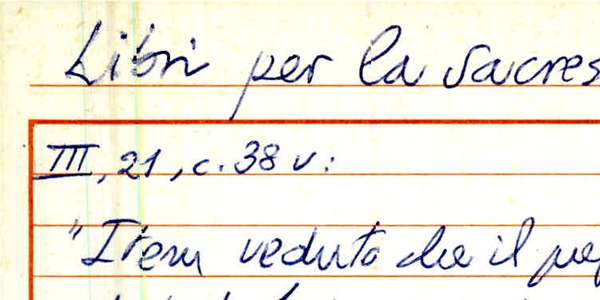 Libri per la Sacres
III, 21, c. 38 v:
"Item veduto che il